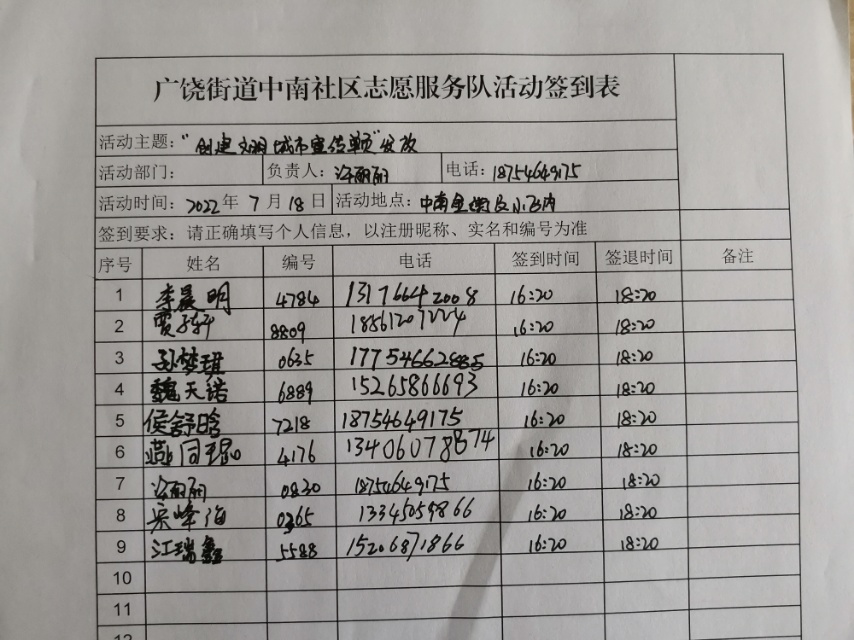 广饶街道中南社区志愿服务队活动签到表
活动主题："创建文明城市宣传单页"发放
活动部门： 负责人：丽丽 电话：18754649175
活动时间：2022年7月18日 活动地点：中南小区内
签到要求：请正确填写个人信息，以注册昵称、实名和编号为准
序号 姓名 编号 电话 签到时间 签退时间 备注
1 李晨明 4784 13176642008 16:20 18:20
2 贾轩 8809 18561207224 16:20 18:20
3 孙梦琪 0635 17754662885 16:20 18:20
4 魏天诺 6889 15265866693 16:20 18:20
5 侯舒晗 7218 18754649175 16:20 18:20
6 燕同 4176 13406078874 16:20 18:20
7 丽丽 0830 18754649175 16:20 18:20
8 峰海 0365 13345059866 16:20 18:20
9 江瑞鑫 5588 15206871866 16:20 18:20
10
11
12